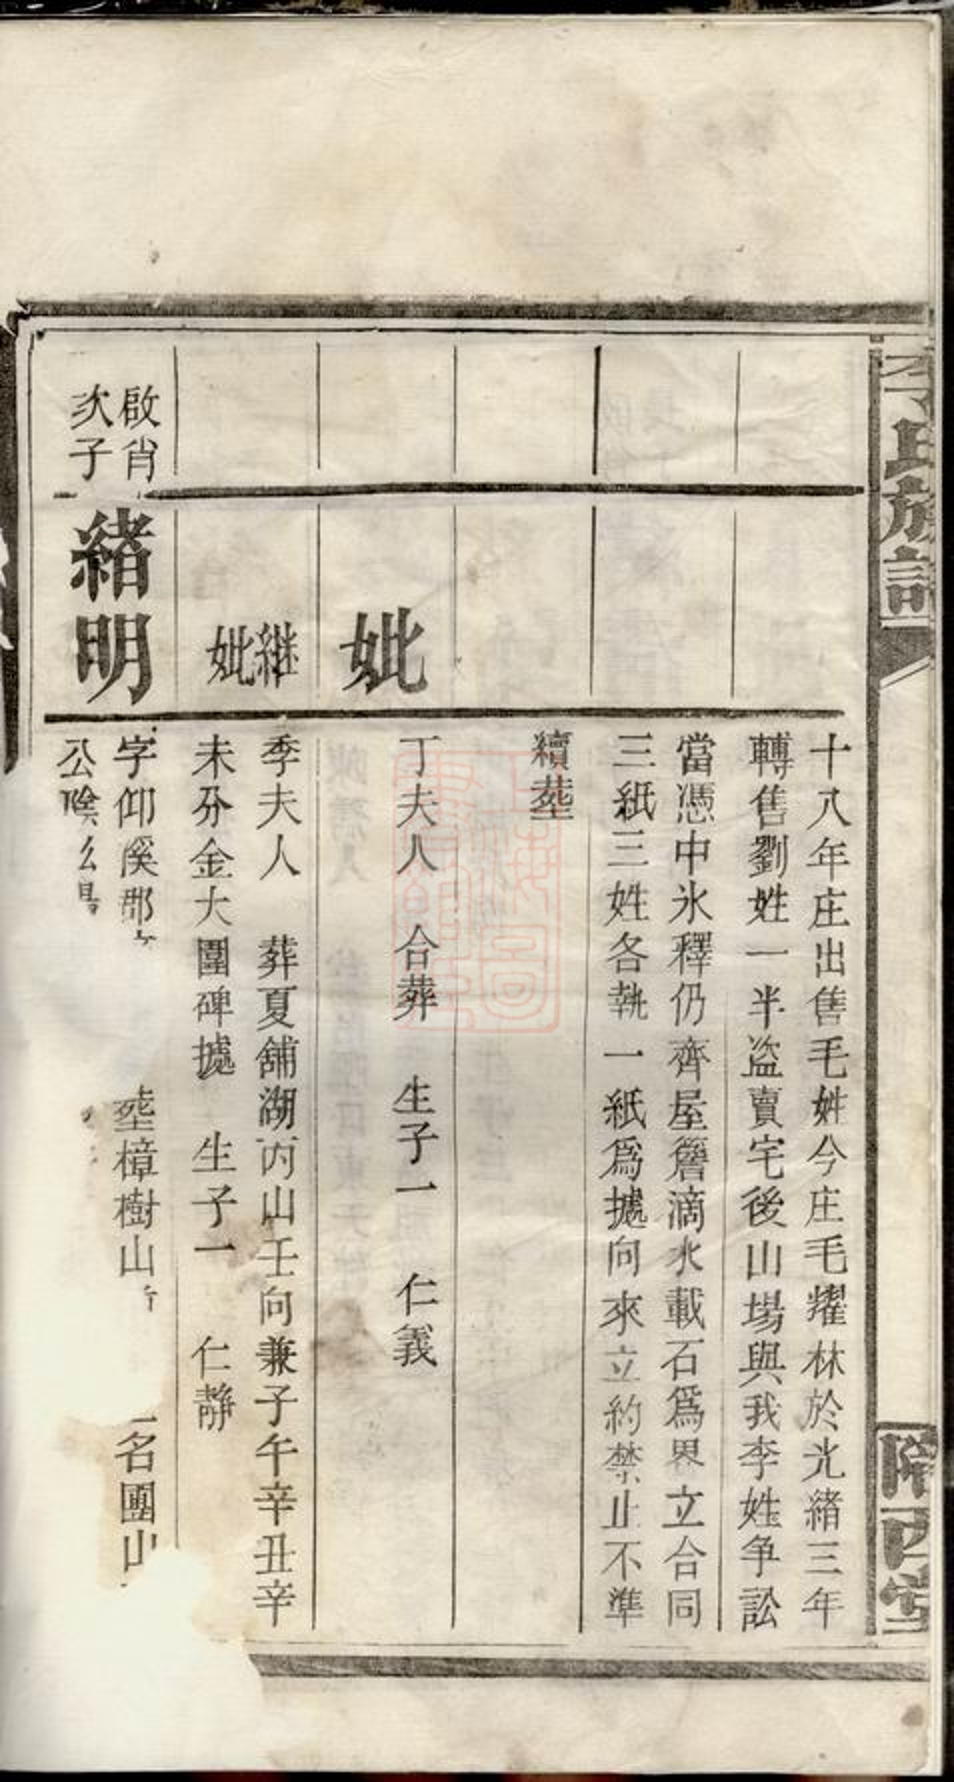 李氏族譜
隴西堂
十八年庄出售毛姓今庄毛耀林於光緒三年
轉售劉姓一半盜賣宅後山場與我李姓争訟
當憑中氷釋仍齊屋簷滴水載石爲界立合同
三紙三姓各執一紙爲據向來立約禁止不準
續塟
妣
丁夫人 合葬 生子一 仁義
継妣
季夫人 葬夏舖湖丙山壬向兼子午辛丑辛
未分金大圍碑據 生子一 仁靜
啟肖
次子
緒明
字仰溪郡
公
塟樟樹山
名團山